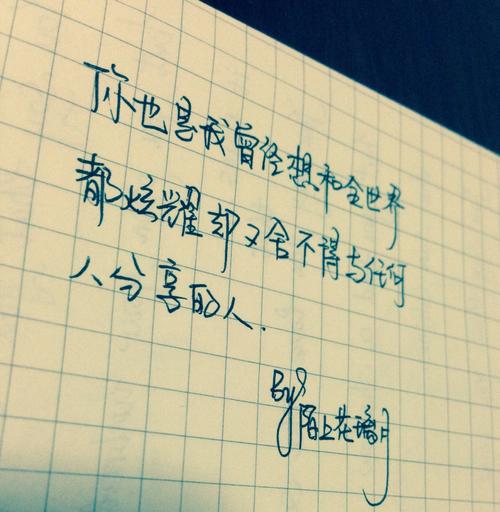 你也是我曾经想和全世界
都炫耀却又舍不得与任何
人分享的人.
By 陌上花璃月